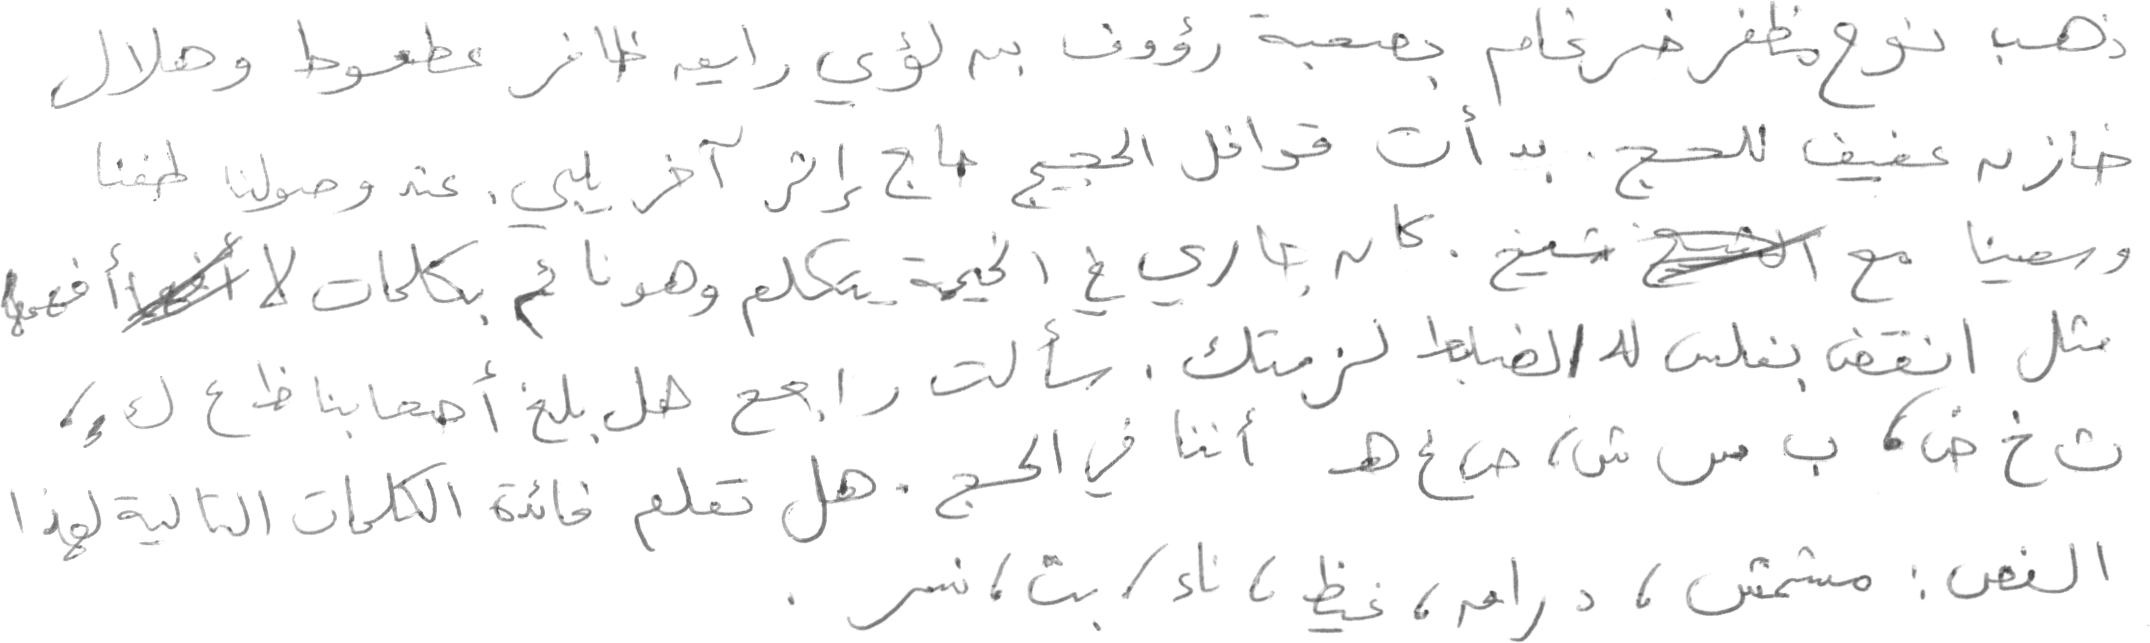 ذهب نوح مظفر ضرغام بصحبة رؤوف بن لؤي راجي ظافر عطعوط وهلال
خازن عفيف للحج. بدأت قوافل الحجيج حاج إثر آخر يلبي. عند وصولنا طفنا
وسعينا مع شيخ. كان جاري في الخيمة يتكلم وهو نائم بكلمات لا أفهمها
مثل انقض بغلس لله الضابط لزمتك. سألت راجح هل بلغ أصحابنا ظ ع ك،
ث خ ض، ب س ش، ص غ ه أننا في الحج. هل تعلم فائدة الكلمات التالية لهذا
النص: مشمش، دراهم، غيظ، ناء، بت، نسر.